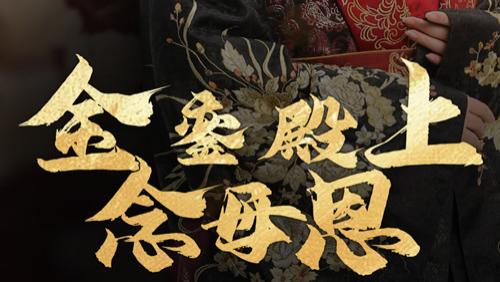 金銮殿上
念母恩